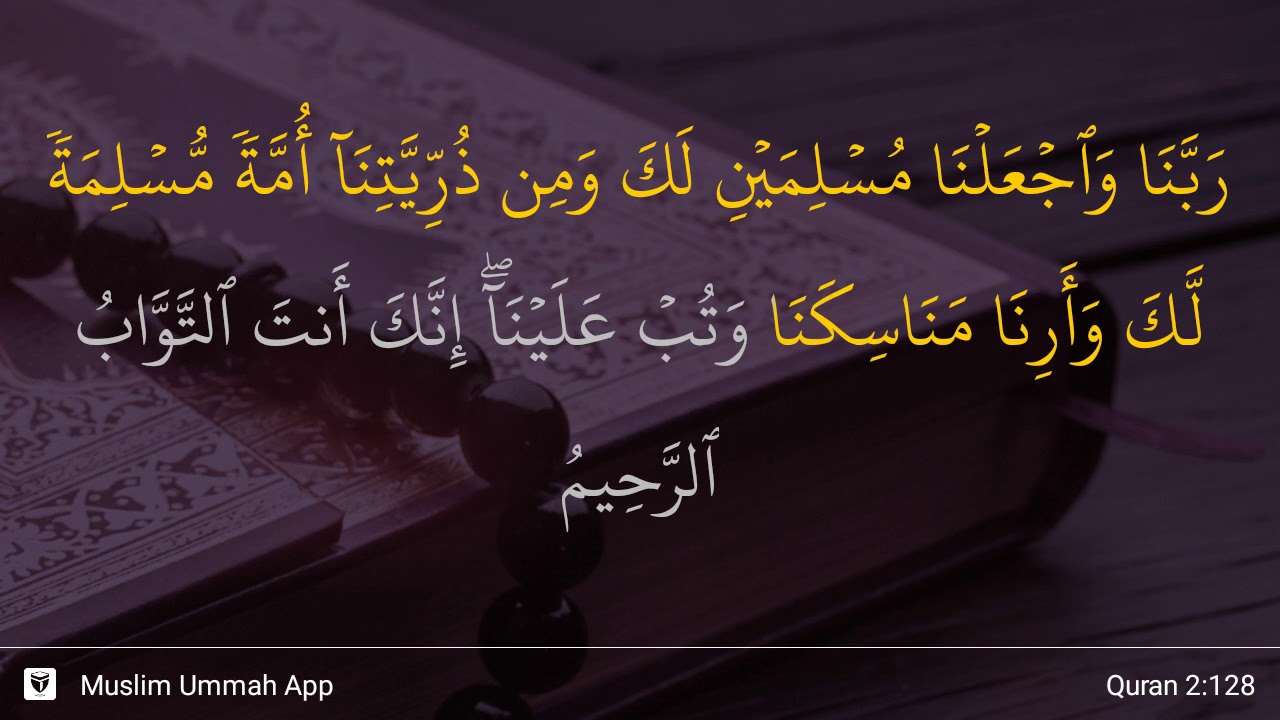 رَبَّنَا وَٱجْعَلْنَا مُسْلِمَيْنِ لَكَ وَمِن ذُرِّيَّتِنَآ أُمَّةً مُّسْلِمَةً
لَّكَ وَأَرِنَا مَنَاسِكَنَا وَتُبْ عَلَيْنَآ ۖ إِنَّكَ أَنتَ ٱلتَّوَّابُ
ٱلرَّحِيمُ
Muslim Ummah App
Quran 2:128